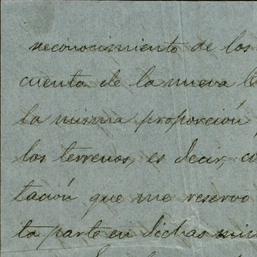 reconocimiento de los
cuenta de la nueva
la misma proporción
los terrenos, es decir, 
tación que me reservo
ta parte en dichas